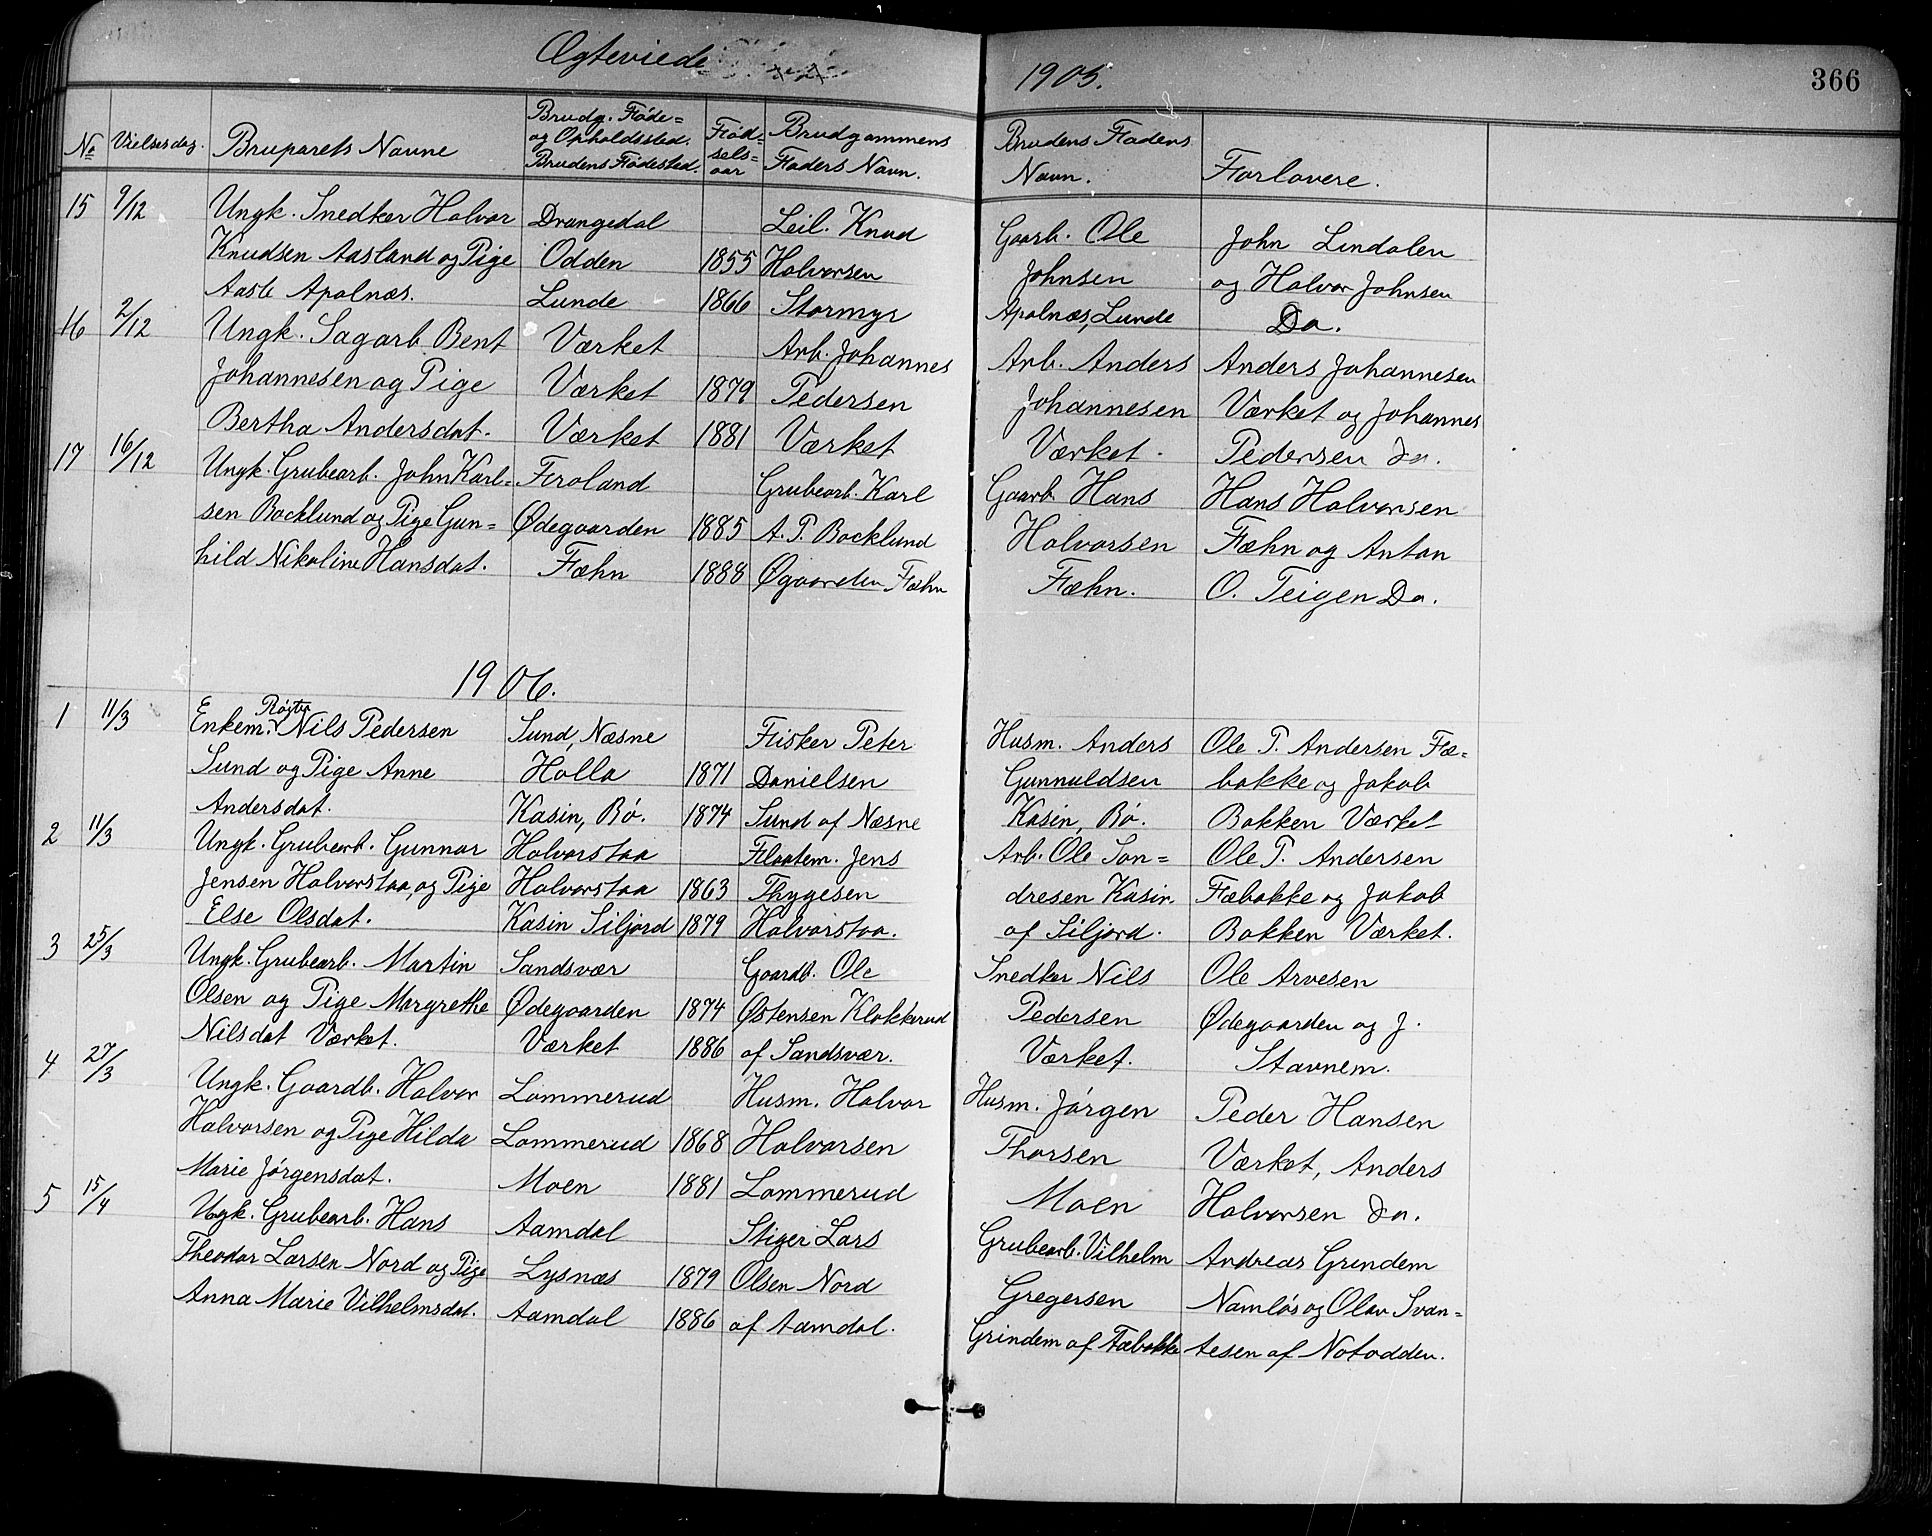 Ægteviede
1905.
366
No
Vielsesdag.
Bruparets Navne
Brudg. Føde=
og Opholdssted.
Brudens Fødested.
Fød=
sels=
aar
Brudgommens
Faders Navn.
Brudens Faders
Navn.
Forlovere.
15 9/12 Ungk. Snedker Halvor Drangedal Leil. Knud Gaarb. Ole John Lindalen
Knudsen Aasland og Pige Odden 1855 Halvorsen Johnsen og Halvor Johnsen
Aaste Apalnæs. Lunde 1866 Stormyr Apalnæs, Lunde Do.
16 2/12 Ungk. Sagarb. Bent Værket Arb. Johannes Arb. Anders Anders Johannesen
Johannesen og Pige Værket 1879 Pedersen Johannesen Værket og Johannes
Bertha Andersdat. Værket 1881 Værket Værket. Pedersen do.
17 16/12 Ungk. Grubearb. John Karl= Froland Grubearb. Karl Gaarb. Hans Hans Halvorsen
sen Bocklund og Pige Gun= Ødegaarden 1885 A. P. Bocklund Halvorsen Fæhn og Anton
hild Nikoline Hansdat. Fæhn 1888 Øgaarden Fæhn Fæhn. O. Teigen Do.
1906.
1 11/3 Enkem. Røgter Nils Pedersen Sund, Næsne Fisker Peter Husm. Anders Ole P. Andersen Fæ=
Sund og Pige Anne Holla 1871 Danielsen Gunnuldsen bakke og Jakob
Andersdat. Kasin, Bø. 1874 Sund af Næsne Kasin, Bø. Bakken Værket
2 11/3 Ungk. Grubearb. Gunnar Halvorstaa Flaatem. Jens Arb. Ole Son= Ole P. Andersen
Jensen Halvorstaa, og Pige Halvorstaa 1863 Thygesen dresen Kasin. Fæbakke og Jakob
Else Olsdat. Kasin Siljord 1879 Halvorstaa. af Siljord. Bakken Værket.
3 25/3 Ungk. Grubearb. Martin Sandsvær Gaardb. Ole Snedker Nils Ole Arvesen
Olsen og Pige Margrethe Ødegaarden 1874 Østensen Klokkerud Pedersen Ødegaarden og J.
Nilsdat Værket. Værket 1886 af Sandsvær. Værket. Stavnem.
4 27/3 Ungk. Gaardb. Halvor Lommerud Husm. Halvor Husm. Jørgen Peder Hansen
Halvorsen og Pige Hilda Lommerud 1868 Halvorsen Thorsen Værket, Anders
Marie Jørgensdat. Moen 1881 Lommerud Moen Halvorsen do.
5 15/4 Ugk. Grubearb. Hans Aamdal Stiger Lars Grubearb. Vilhelm Andreas Grindem
Theodor Larsen Nord og Pige Lysnæs 1879 Olsen Nord Gregersen Namløs og Olav Svan=
Anna Marie Vilhelmsdat. Aamdal 1886 af Aamdal. Grindem af Fæbakke tesen af Notodden.